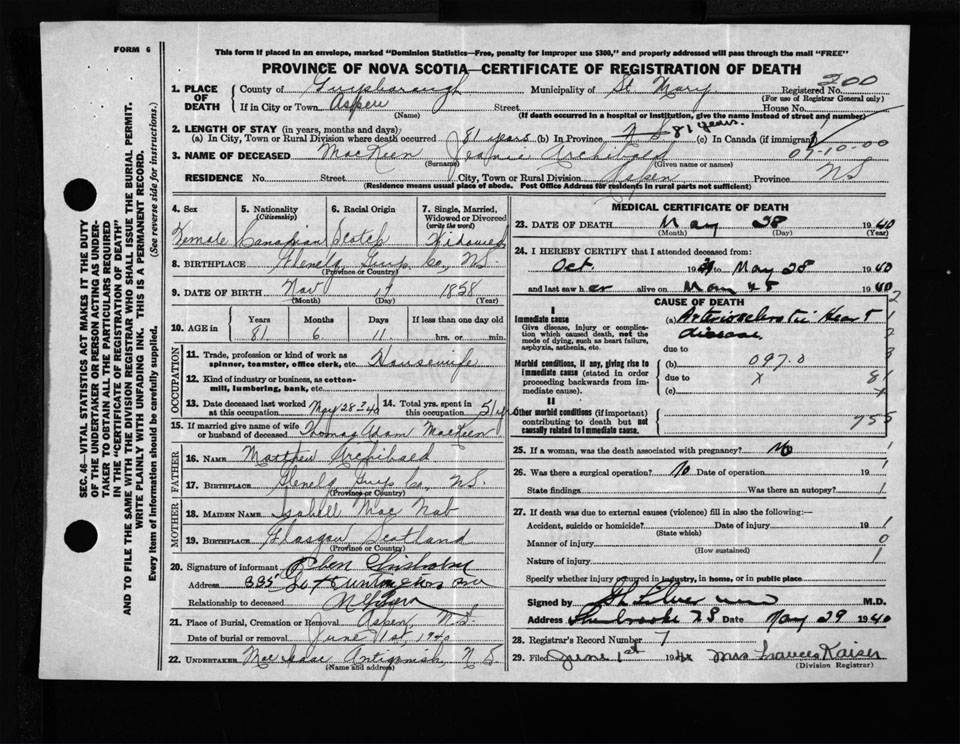 FORM 6
This form if placed in an envelope, marked "Dominion Statistics—Free, penalty for improper use $300," and properly addressed will pass through the mail "FREE"
PROVINCE OF NOVA SCOTIA—CERTIFICATE OF REGISTRATION OF DEATH
SEC. 46—VITAL STATISTICS ACT MAKES IT THE DUTY
OF THE UNDERTAKER OR PERSON ACTING AS UNDER-
TAKER TO OBTAIN ALL THE PARTICULARS REQUIRED
IN THE "CERTIFICATE OF REGISTRATION OF DEATH"
AND TO FILE THE SAME WITH THE DIVISION REGISTRAR WHO SHALL ISSUE THE BURIAL PERMIT.
WRITE PLAINLY WITH UNFADING INK. THIS IS A PERMANENT RECORD.
Every item of information should be carefully supplied. (See reverse side for instructions.)
1. PLACE OF DEATH County of Guysborough Municipality of St. Mary Registered No. 200
(For use of Registrar General only)
If in City or Town Aspen Street House No.
(Name) (If death occurred in a hospital or institution, give the name instead of street and number)
2. LENGTH OF STAY (in years, months and days)
(a) In City, Town or Rural Division where death occurred 81 years (b) In Province 81 years. (c) In Canada (if immigrant)
3. NAME OF DECEASED MacKeen Jennie Archibald 07-10-00
(Surname) (Given name or names)
RESIDENCE No. Street City, Town or Rural Division Aspen Province NS
(Residence means usual place of abode. Post Office Address for residents in rural parts not sufficient)
4. Sex Female
5. Nationality (Citizenship) Canadian
6. Racial Origin Scotch
7. Single, Married, Widowed or Divorced (write the word) Widowed
8. BIRTHPLACE Glenelg Guys Co, NS.
(Province or Country)
9. DATE OF BIRTH Nov 17 1858
(Month) (Day) (Year)
10. AGE in Years 81 Months 6 Days 11 If less than one day old hrs. or min.
OCCUPATION
11. Trade, profession or kind of work as spinner, teamster, office clerk, etc. Housewife
12. Kind of industry or business, as cotton-mill, lumbering, bank, etc.
13. Date deceased last worked at this occupation May 28th 40 14. Total yrs. spent in this occupation 51 yr
15. If married give name of wife or husband of deceased Thomas Adam MacKeen
FATHER
16. NAME Matthew Archibald
17. BIRTHPLACE Glenelg Guys Co, NS.
(Province or Country)
MOTHER
18. MAIDEN NAME Isabell Mac Nab
19. BIRTHPLACE Glasgow Scotland
(Province or Country)
20. Signature of informant Eben Chisholm
Address 335 So Huntington Ave
Relationship to deceased
21. Place of Burial, Cremation or Removal Aspen, N.S.
Date of burial or removal June 1st, 1940
22. UNDERTAKER MacIsaac Antigonish, N S.
(Name and address)
MEDICAL CERTIFICATE OF DEATH
23. DATE OF DEATH May 28 1940
(Month) (Day) (Year)
24. I HEREBY CERTIFY that I attended deceased from
Oct. 19 to May 28 1940
and last saw her alive on May 28 1940
CAUSE OF DEATH
I
Immediate cause
Give disease, injury or complication which caused death, not the mode of dying, such as heart failure, asphyxia, asthenia, etc.
(a) Arteriosclerotic Heart disease
due to
Morbid conditions, if any, giving rise to immediate cause (stated in order proceeding backwards from immediate cause).
(b) 097.0
due to X
(c)
II
Other morbid conditions (if important) contributing to death but not causally related to immediate cause. 755
25. If a woman, was the death associated with pregnancy? No 1
26. Was there a surgical operation? No Date of operation 19 1
State findings Was there an autopsy? 1
27. If death was due to external causes (violence) fill in also the following:—
Accident, suicide or homicide? Date of injury 19 1
(State which)
Manner of injury 0
(How sustained)
Nature of injury 1
Specify whether injury occurred in industry, in home, or in public place
Signed by M.D.
Address Sherbrooke N.S Date May 29 1940
28. Registrar's Record Number 7
29. Filed June 1st 19 Mrs Frances Kaiser
(Division Registrar)